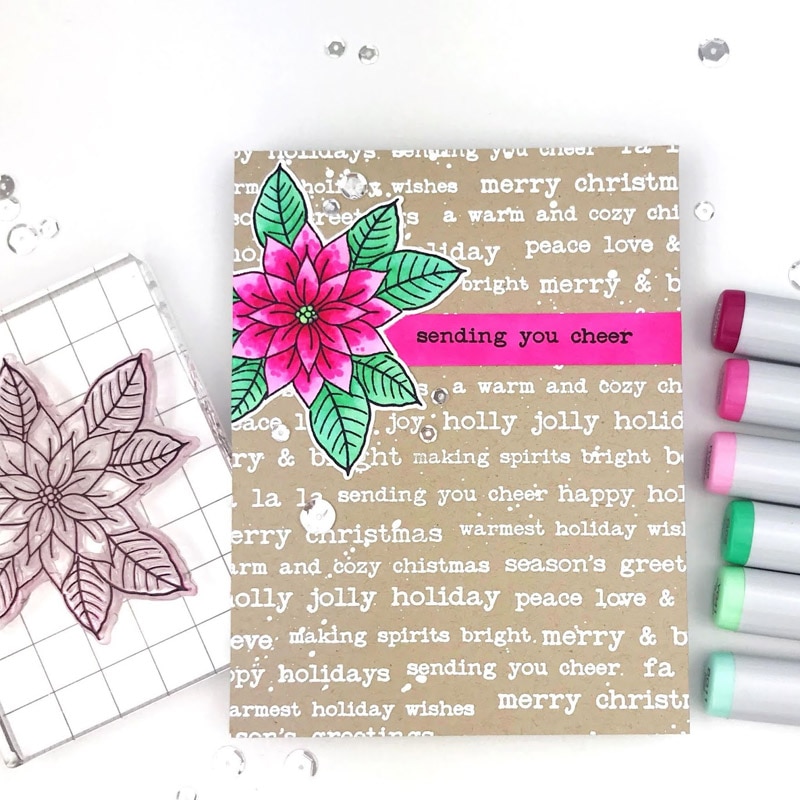 py holidays sending you cheer fa l
holiday wishes merry christm
greetings a warm and cozy chi
holiday peace love &
bright merry & b
sending you cheer
a warm and cozy ch
joy holly jolly holid
ry & bright making spirits bright be
la la sending you cheer happy hol
erry christmas warmest holiday wish
arm and cozy chistmas season's greet
olly jolly holiday peace love &
eve making spirits bright merry & b
ppy holidays sending you cheer fa
armest holiday wishes merry christm
son's greetings